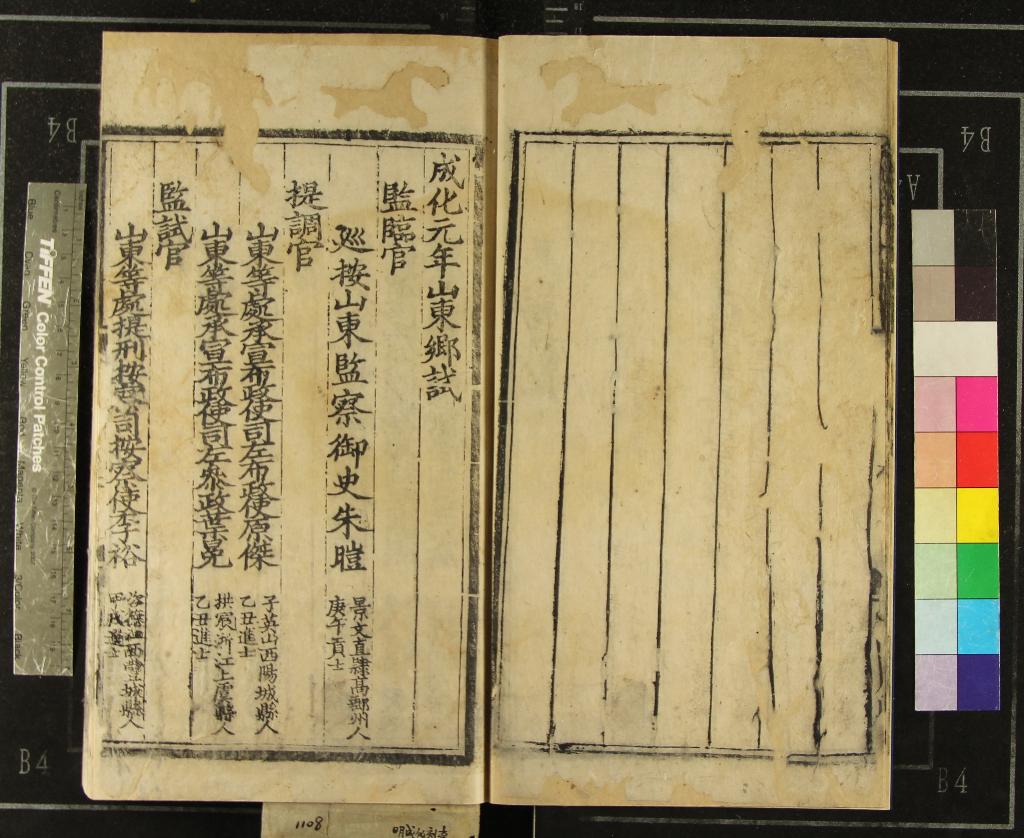 成化元年山東鄉試
監臨官
巡按山東監察御史朱暟
景文直隸高郵州人
庚午貢士
提調官
山東等處承宣布政使司左布政使原傑
子英山西陽城縣人
乙丑進士
山東等處承宣布政使司左參政葉冕
拱宸浙江上虞縣人
乙丑進士
監試官
山東等處提刑按察司按察使李裕
江西豐城縣人
甲戌進士
TIFFEN Color Control Patches
B4
B4
B4
B4
1108